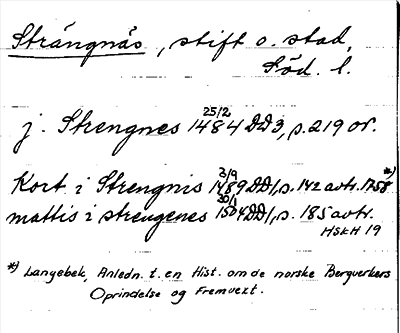 Strängnäs, stift o. stad,
Söd. l.
25/2
j. Strengnes 1484 DD3, s. 219 or.
3/9
Kort i Strengnis 1489 DD1, s. 142 avtr. 1758 *)
30/1
mattis i strengenes 1504 DD1, s. 185 avtr.
HSkH 19
*) Langebek, Anledn. t. en Hist. om de norske Bergverkers
Oprindelse og Fremvext.